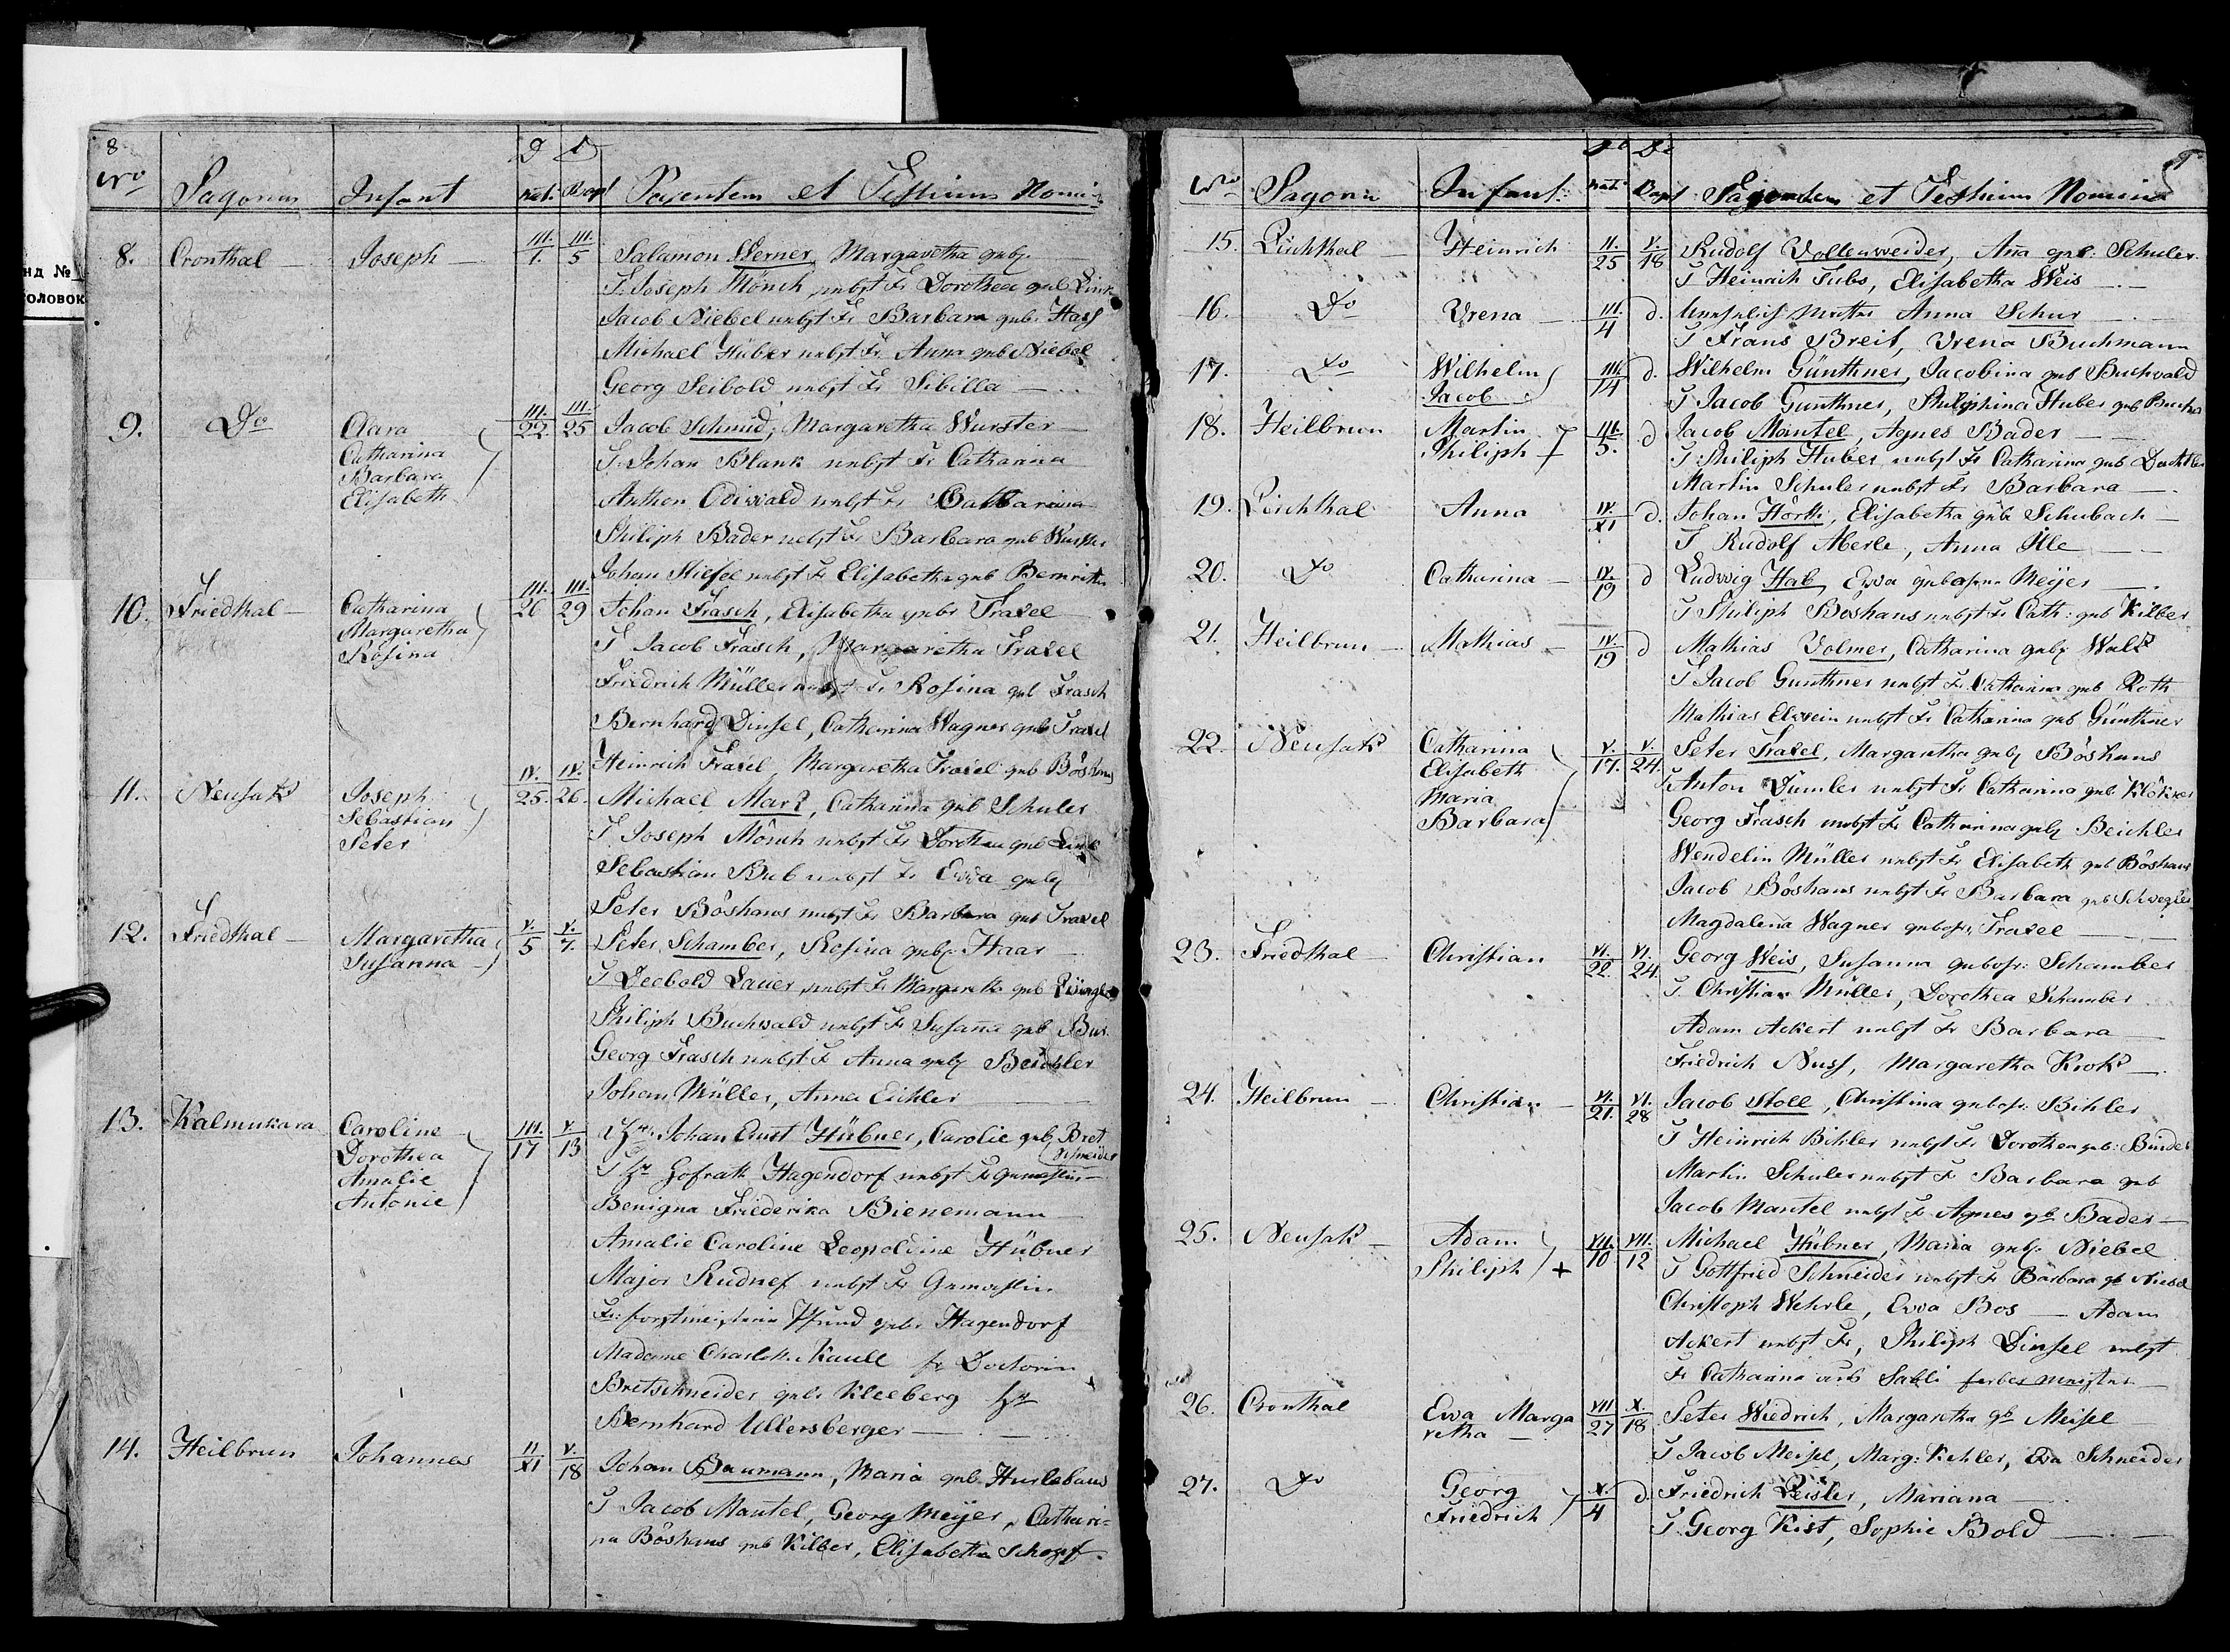 8
Nro Pagorum Infant D nat. D Bapt Parentum et Testium Nomi
8. Cronthal — Joseph — III./1. III./5 Salamon Werner, Margaretha geb.
T. Joseph Mönch nebst Fr Dorothea geb Link
Jacob Niebel nebst Fr Barbara geb. Hass
Michael Hüber nebst Fr. Anna geb Niebel
Georg Seibold nebst Fr Sibilla —
9. Do Clara III./22. III./25 Jacob Schmid, Margaretha Wurster —
Catharina T. Johan Blank nebst Fr Catharina
Barbara Anthon Odiwald nebst Fr Catharina
Elisabeth Philiph Bader nebst Fr Barbara geb Wurster
Johan Stiefel nebst Fr Elisabetha geb
10. Friedthal — Catharina III./26 III./29 Johan Frasch, Elisabetha gebr Traxel
Margaretha T Jacob Frasch, Margaretha Traxel
Rosina Friedrich Müller nebst Fr Rosina geb Frasch
Bernhard Dinsel, Catharina Wagner geb Traxel
Heinrich Traxel, Margaretha Traxel geb Böshans
11. Neusatz Joseph IV./25. IV./26. Michael Marz, Catharina geb Schuler
Sebastian T. Joseph Mönch nebst Fr Dorothea geb Link
Peter Sebastian Bub nebst Fr Ewa geb
Peter Böshans nebst Fr Barbara geb Traxel
12. Friedthal — Margaretha V./5 V./7. Peter Schamber, Rosina geb. Haar
Susanna — T Leobold Lauer nebst Fr Margaretha geb
Philiph Buchwald nebst Fr Susaña geb Bus.
Georg Frasch nebst Fr Anna geb Beichler
Johan Müller, Anna Eichler —
13. Kalmukara Caroline III./17 V./13 Hr. Johan Ernst Hübner, Carolie geb Bret
Dorothea schneider
Amalie T Hr Hofrath Hagendorf nebst Fr Gemahlin —
Antonie Benigna Friederika Bienemann
Amalie Caroline Leopoldine Hübner
Major Rudnef nebst Fr Gemahlin
Fr: forstmeisterin Pfund geb. Hagendorf
Madame Charlotte Kaull fr Doctorin
Bretschneider geb. Kleeberg Hr
Bernhard Ullersberger —
14. Heilbrun Johannes II/XI V./18 Johan Baumann, Maria geb. Hurlebaus
T Jacob Mantel, Georg Meyer, Cathari-
na Böshans geb Kilber, Elisabetha Schopf.
9
Nro Pagorū Infant: nati Bapt Parentum et Testium Nomina
15. Lichthal Heinrich II./25 V./18 Rudolf Vollenweider, Aña geb: Schuler.
T Heinrich Fuhs, Elisabetha Weis —
16. Do Vrena — III./4 d. Unehelich Mutter Anna Schur —
T Frans Breit, Vrena Buchmann
17. Do Wilhelm III./14 d. Wilhelm Günthner, Jacobina geb Buchwald
Jacob T Jacob Gunthner, Philiphina Huber geb Buchw
18. Heilbrun Martin III./5. d Jacob Mantel, Agnes Bader —
Philiph T. Philiph Huber nebst Fr Catharina geb Dachtler
Martin Schuler nebst Fr Barbara —
19. Lichthal Anna IV./XI d. Johan Hörth, Elisabetha geb Schubach —
T Rudolf Aberle, Anna Ille —
20. Do Catharina — IV./19 d Ludwig Hab, Ewa gebohrne Meyer —
T Philiph Boshans nebst Fr Cath: geb Kilber
21. Heilbrun — Mathias — IV/19 d Mathias Volmer, Catharina geb Walz
T Jacob Gunthner nebst Fr Catharina geb Roth
Mathias Elwein nebst Fr Catharina geb Günthner
22. Neusatz Catharina V./17. V./24 Peter Traxel, Margaretha geb Böshans
Elisabeth T Anton Dümler nebst Fr Catharina geb Klötzer
Maria Georg Frasch nebst Fr Catharina geb Beichler
Barbara Wendelin Müller nebst Fr Elisabeth geb Böshans
Jacob Böshans nebst Fr Barbara geb Schwegler
Magdalena Wagner gebohr. Traxel —
23. Friedthal — Christian VI./22. VI./24. Georg Weis, Susanna gebohr: Schamber
T. Christian Müller, Dorothea Schamber
Adam Ackert nebst Fr Barbara —
Friedrich Nuss, Margaretha Krok —
24. Heilbrun — Christian — VI./21. VI./28 Jacob Stoll, Christina gebohr: Bihler
T Heinrich Bihler nebst Fr Dorothea geb: Binder
Martin Schuler nebst Fr Barbara geb
Jacob Mantel nebst Fr Agnes geb Bader —
25. Neusatz — Adam VII./10 VII./12 Michael Hübner, Maria geb. Niebel
Philiph + T Gottfried Schneider nebst Fr Barbara geb Niebel
Christoph Wehrle, Ewa Bos — Adam
Ackert nebst Fr, Philiph Dinsel nebst
Fr Catharina
26. Cronthal Ewa Marga VII/27 X./18 Peter Wiedrich, Margaretha geb Meisel
retha — T Jacob Meisel, Marg: Kehler, Eva Schneider
27. Do Georg X./4 d. Friedrich Leisler, Mariana —
Friedrich T. Georg Kist, Sophie Bold —